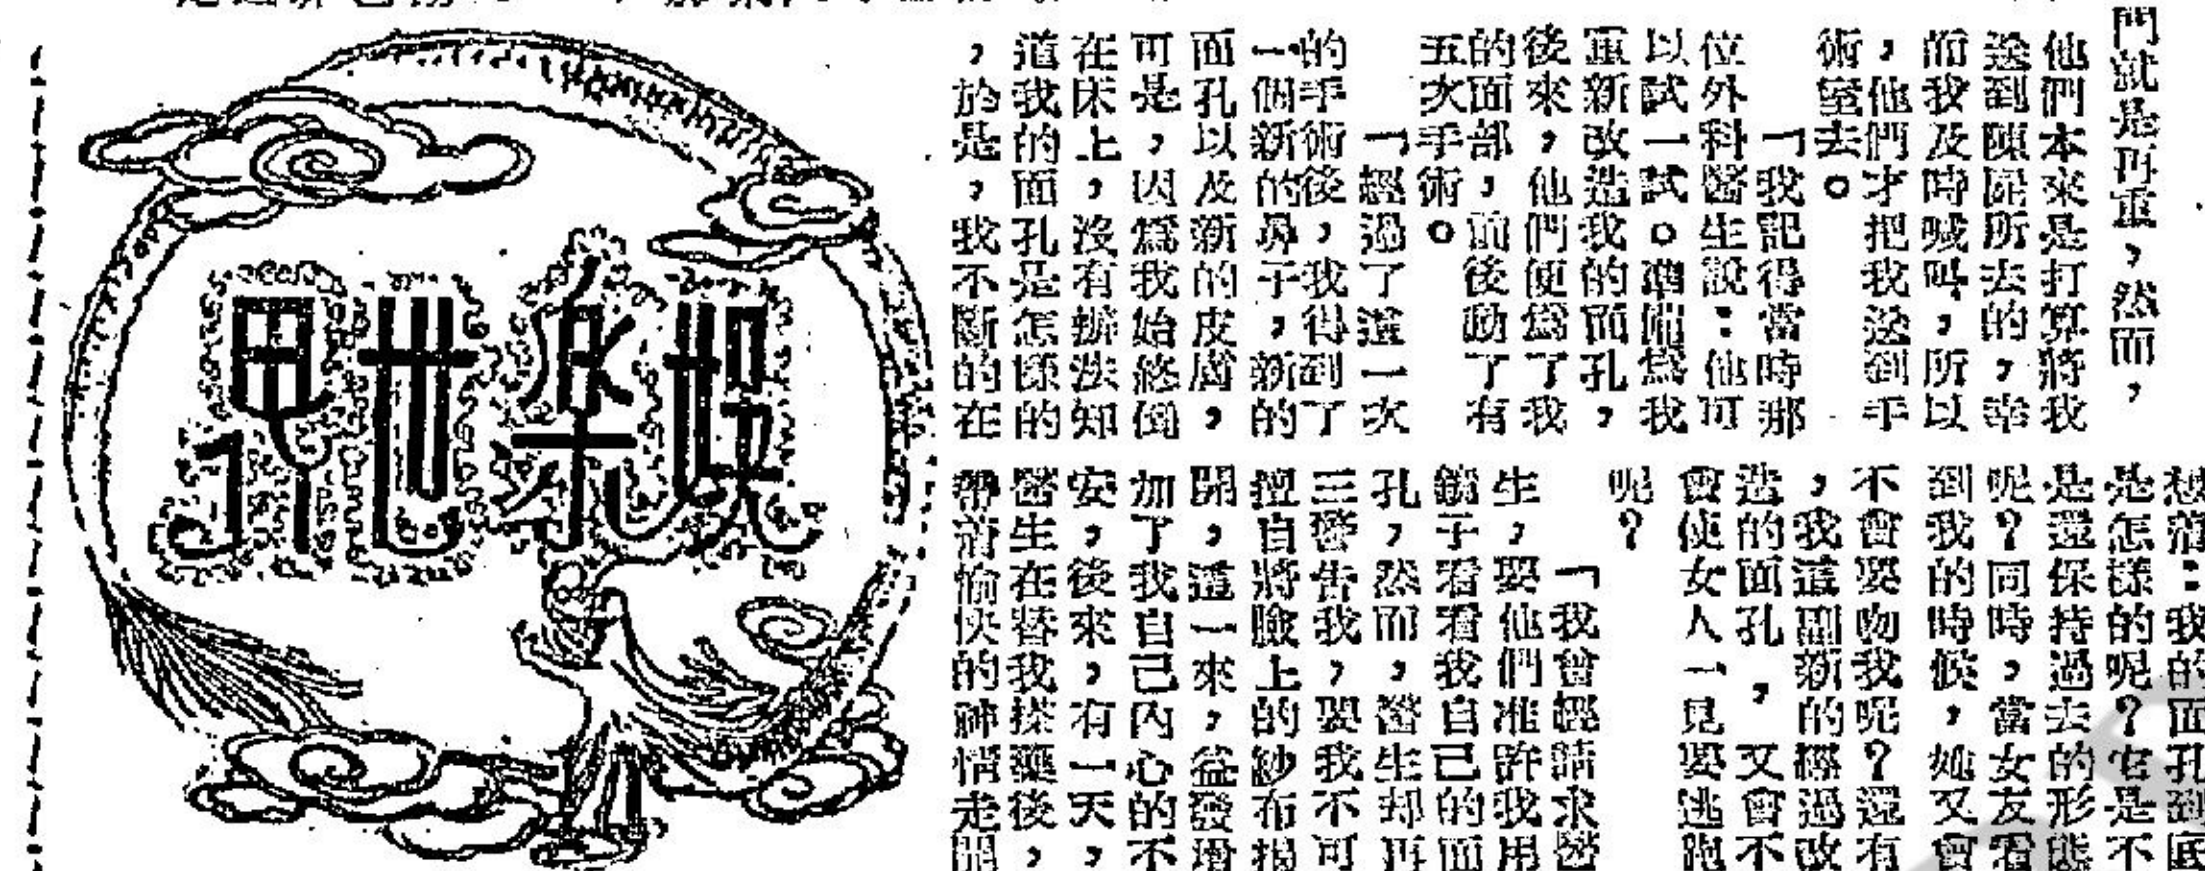 門就是再重，然而，
他們本來是打算將我
送到陳屍所去的，幸
而我及時喊叫，所以
，他們才把我送到手
術室去。
「我記得當時那
位外科醫生說：他可
以試一試。準備爲我
重新改造我的面孔，
後來，他們便爲了我
的面部，前後動了有
五次手術。
「經過了這一次
的手術後，我得到了
一個新的鼻子，新的
面孔以及新的皮膚，
可是，因爲我始終倒
在床上，沒有辦法知
道我的面孔是怎樣的
，於是，我不斷的在
想着：我的面孔到底
是怎樣的呢？它是不
是還保持過去的形態
呢？同時，當女友看
到我的時候，她又會
不會要吻我呢？還有
，我這副新的經過改
造的面孔，又會不
會使女人一見要逃跑
呢？
「我曾經請求醫
生，要他們准許我用
鏡子看看我自己的面
孔，然而，醫生却再
三警告我，要我不可
擅自將臉上的紗布揭
開，這一來，益發增
加了我自己內心的不
安，後來，有一天，
醫生在替我搽藥後，
帶着愉快的神情走開
娛樂世界